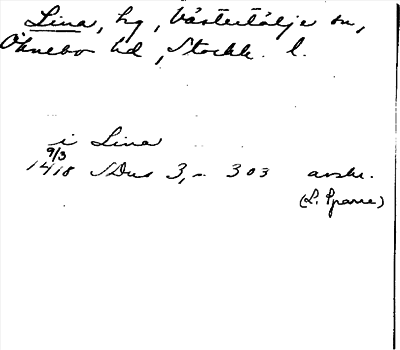 Lina, hg, Västertälje sn,
Öknebo hd, Stockh. l.
i Lina
9/3
1418 SDns 3, 303 avskr.
(L. Sparre)